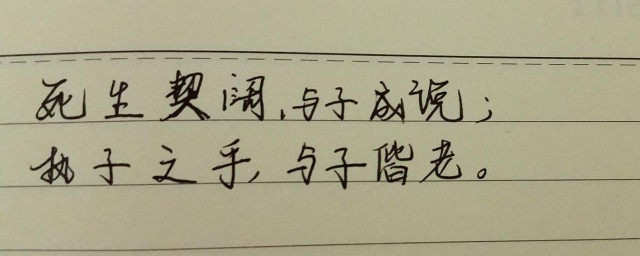 死生契阔,与子成说;
执子之手,与子偕老。